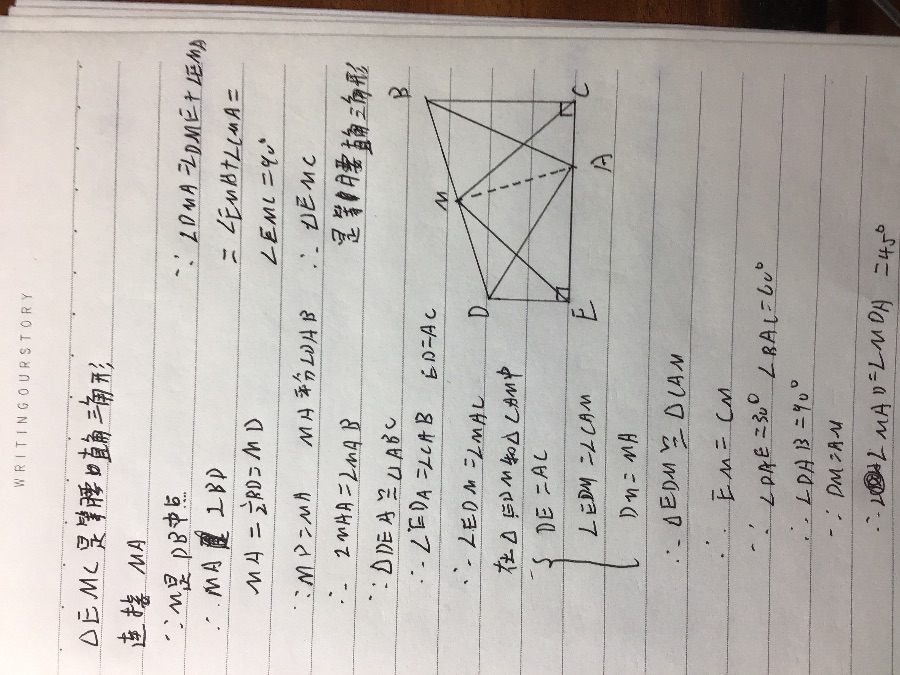 WRITINGOURSTORY
△EMC 是等腰直角三角形
连接 MA
∵ M是 DB中点
∴ MA ⊥BD
MA = ½BD = MD
∵ MD = MA MA 平分∠DAB
∴ ∠MAA = ∠MAB
∵ △DEA ≌ ∠ABC
∴ ∠EDA = ∠CAB ED=AC
∴ ∠EDM = ∠MAC
在△EDM和△CAM中
DE = AC
∠EDM = ∠CAM
DM = MA
∴ △EDM ≌ △CAM
∴ EM = CM
∵ ∠DAE=30° ∠BAC=60°
∴ ∠DAB = 90°
∵ DM=AM
∴ ∠MAD=∠MDA =45°
∵ ∠DMA=∠DME+∠EMA
= ∠EMA+∠CMA=
∠EMC =90°
∴ △EMC
是等腰直角三角形
B
M
D
C
A
E